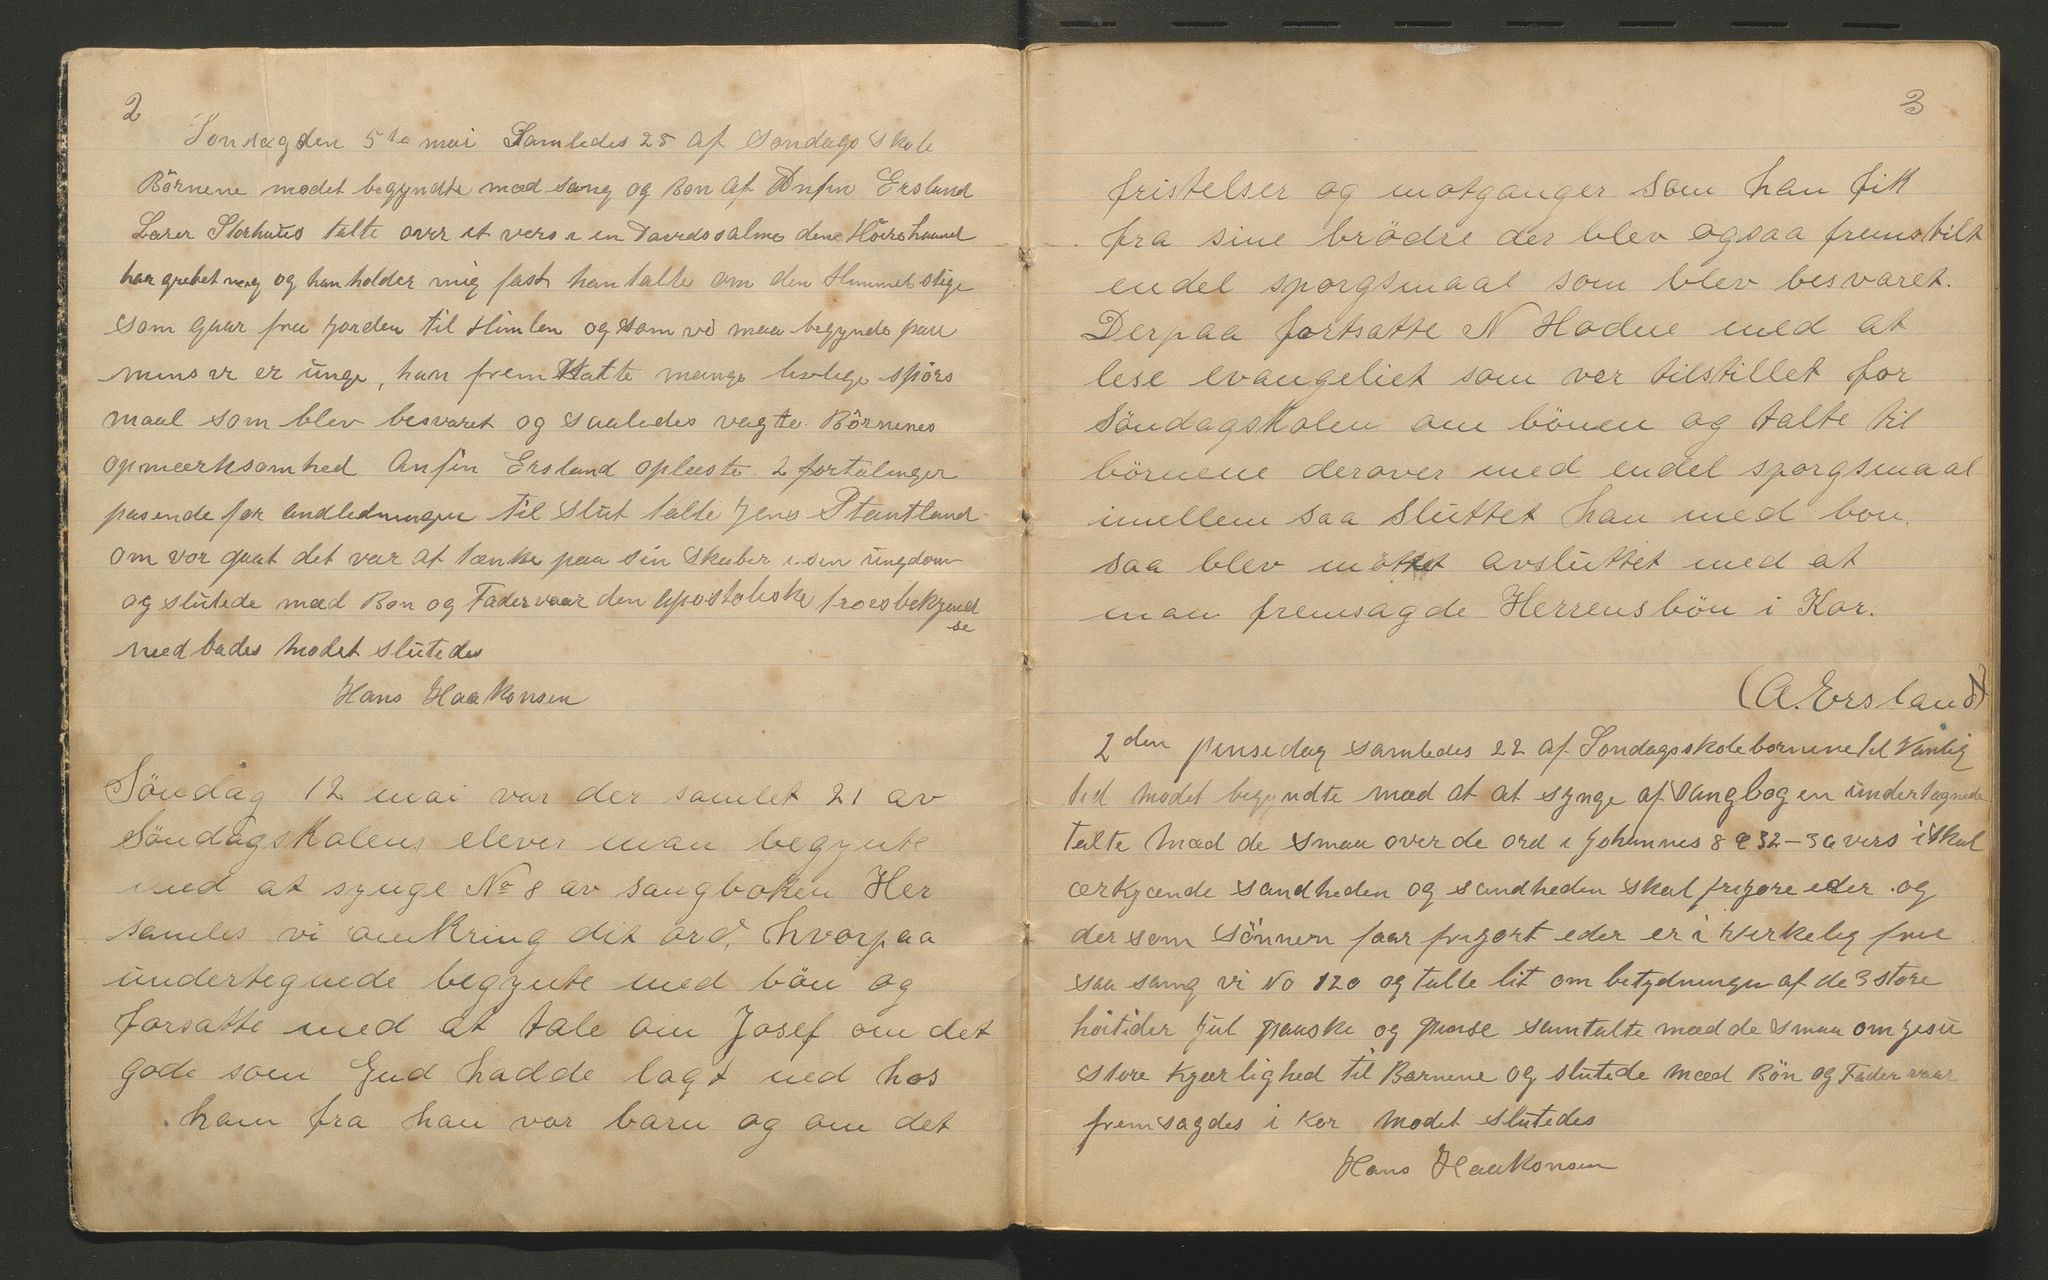 2
Søndag den 5te mai Samledes 28 af søndags skole
Børnene mødet begyndte med sang og Bøn af Anfin Ersland
Lærer Storhaug talte over et vers i en Davids salme den Høies haand
har grebet meg og han holder mig fast han talte om den Himmel stige
som gaar fra jorden til Himlen og som vi maa begynde paa
mens vi er unge, han frem satte mange livlige spørs
maal som blev besvaret og saaledes vagte Børnenes
opmerksomhed Anfin Ersland oplæste 2 fortælinger
pasende for andledningen til slut talte Jens
om vor gaat det var at tænke paa sin skaber i sin ungdom
og slutede med Bøn og Fadervaar den apostoliske troesbekjend
se
medbades mødet slutedes
Hans Haakonsen
Søndag 12 mai var der samlet 21 av
Søndagskolens elever man begynte
med at synge No 8 av sangboken Her
samles vi omkring dit ord, hvorpaa
undertegnede begynte med bön og
forsatte med at tale om Josef om det
gode som Gud hadde lagt ned hos
ham fra han var barn og om det
3
fristelser og motganger som han fik
fra sine brödre der blev ogsaa fremstilt
endel sporgsmaal som blev besvaret.
Derpaa fortsatte N Hodne med at
lese evangeliet som ver tilstillet for
söndagskolen om bönen og talte til
börnene derover med endel sporgsmaal
imellem saa sluttet han med bon.
saa blev möttet avsluttet med at
man fremsagde Herrensbön i Kor.
(A. Ersland)
2den pinsedag samledes 22 af Søndagsskolebørnene til Vanlig
tid mødet begyndte med at at synge af sangbogen undertegnede
talte med de smaa over de ord i Johannes 8 32-36 vers i skal
ærkjænde sandheden og sandheden skal frigjøre eder og
der som Sønnen faar frigjort eder er i virkelig frie
saa sang vi No 120 og talte lit om betydningen af de 3 store
høitider Jul paaske og pinse samtalte med de smaa om Jesu
store kjærlighed til Børnene og slutede med Bøn og Fadervaar
fremsagdes i kor mødet slutedes
Hans Haakonsen